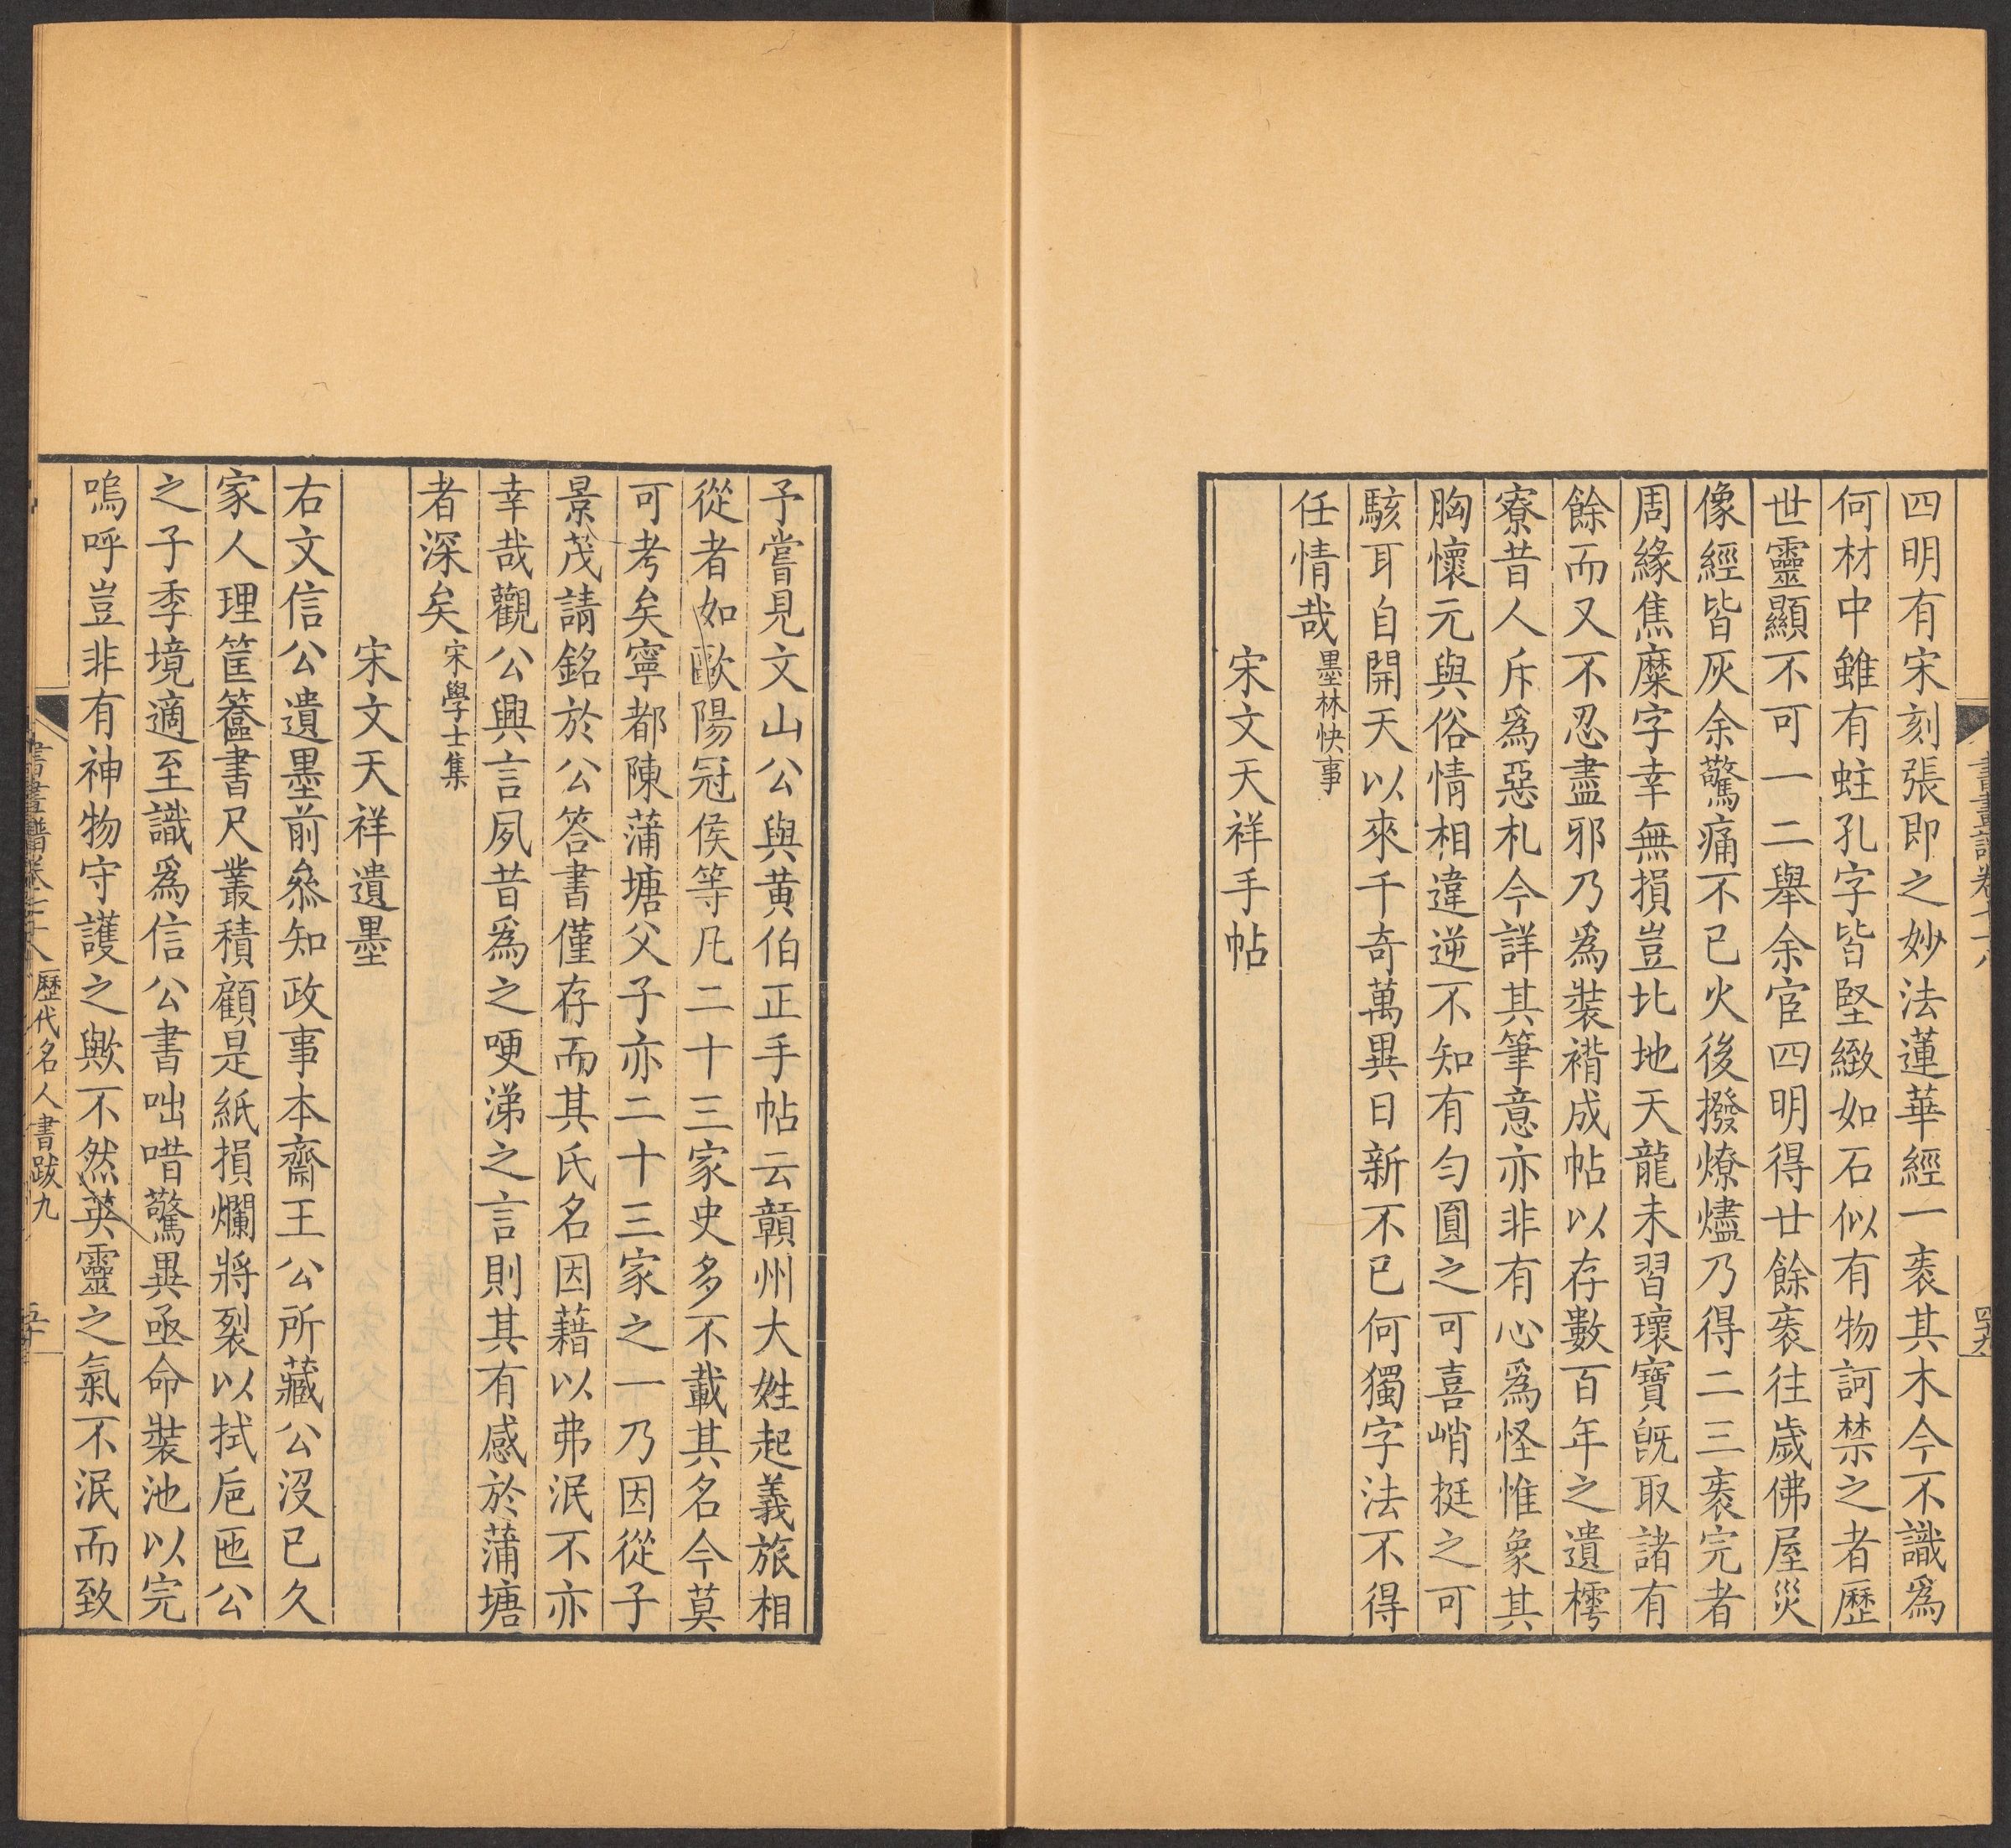 四明有宋刻張即之妙法蓮華經一袠其木今不識爲
何材中雖有蛀孔字皆堅緻如石似有物訶禁之者歷
世靈顯不可一二舉余宦四明得廿餘袠往歲佛屋災
像經皆灰余驚痛不已火後撥燎燼乃得二三袠完者
周緣焦糜字幸無損豈北地天龍未習瓌寶旣取諸有
餘而又不忍盡邪乃爲裝褙成帖以存數百年之遺樗
寮昔人斥爲惡札今詳其筆意亦非有心爲怪惟象其
胸懷元與俗情相違逆不知有勻圓之可喜峭挺之可
駭耳自開天以來千奇萬異日新不已何獨字法不得
任情哉墨林快事
宋文天祥手帖
予嘗見文山公與黃伯正手帖云贑州大姓起義旅相
從者如歐陽冠侯等凡二十三家史多不載其名今莫
可考矣寧都陳蒲塘父子亦二十三家之一乃因從子
景茂請銘於公答書僅存而其氏名因藉以弗泯不亦
幸哉觀公興言夙昔爲之哽涕之言則其有感於蒲塘
者深矣宋學士集
宋文天祥遺墨
右文信公遺墨前叅知政事本齋王公所藏公沒已久
家人理筐簽書尺叢積顧是紙損爛將裂以拭巵匜公
之子季境適至識爲信公書咄唶驚異亟命裝池以完
嗚呼豈非有神物守護之歟不然英靈之氣不泯而致
書畫譜卷七十八 歷代名人書跋九 五十